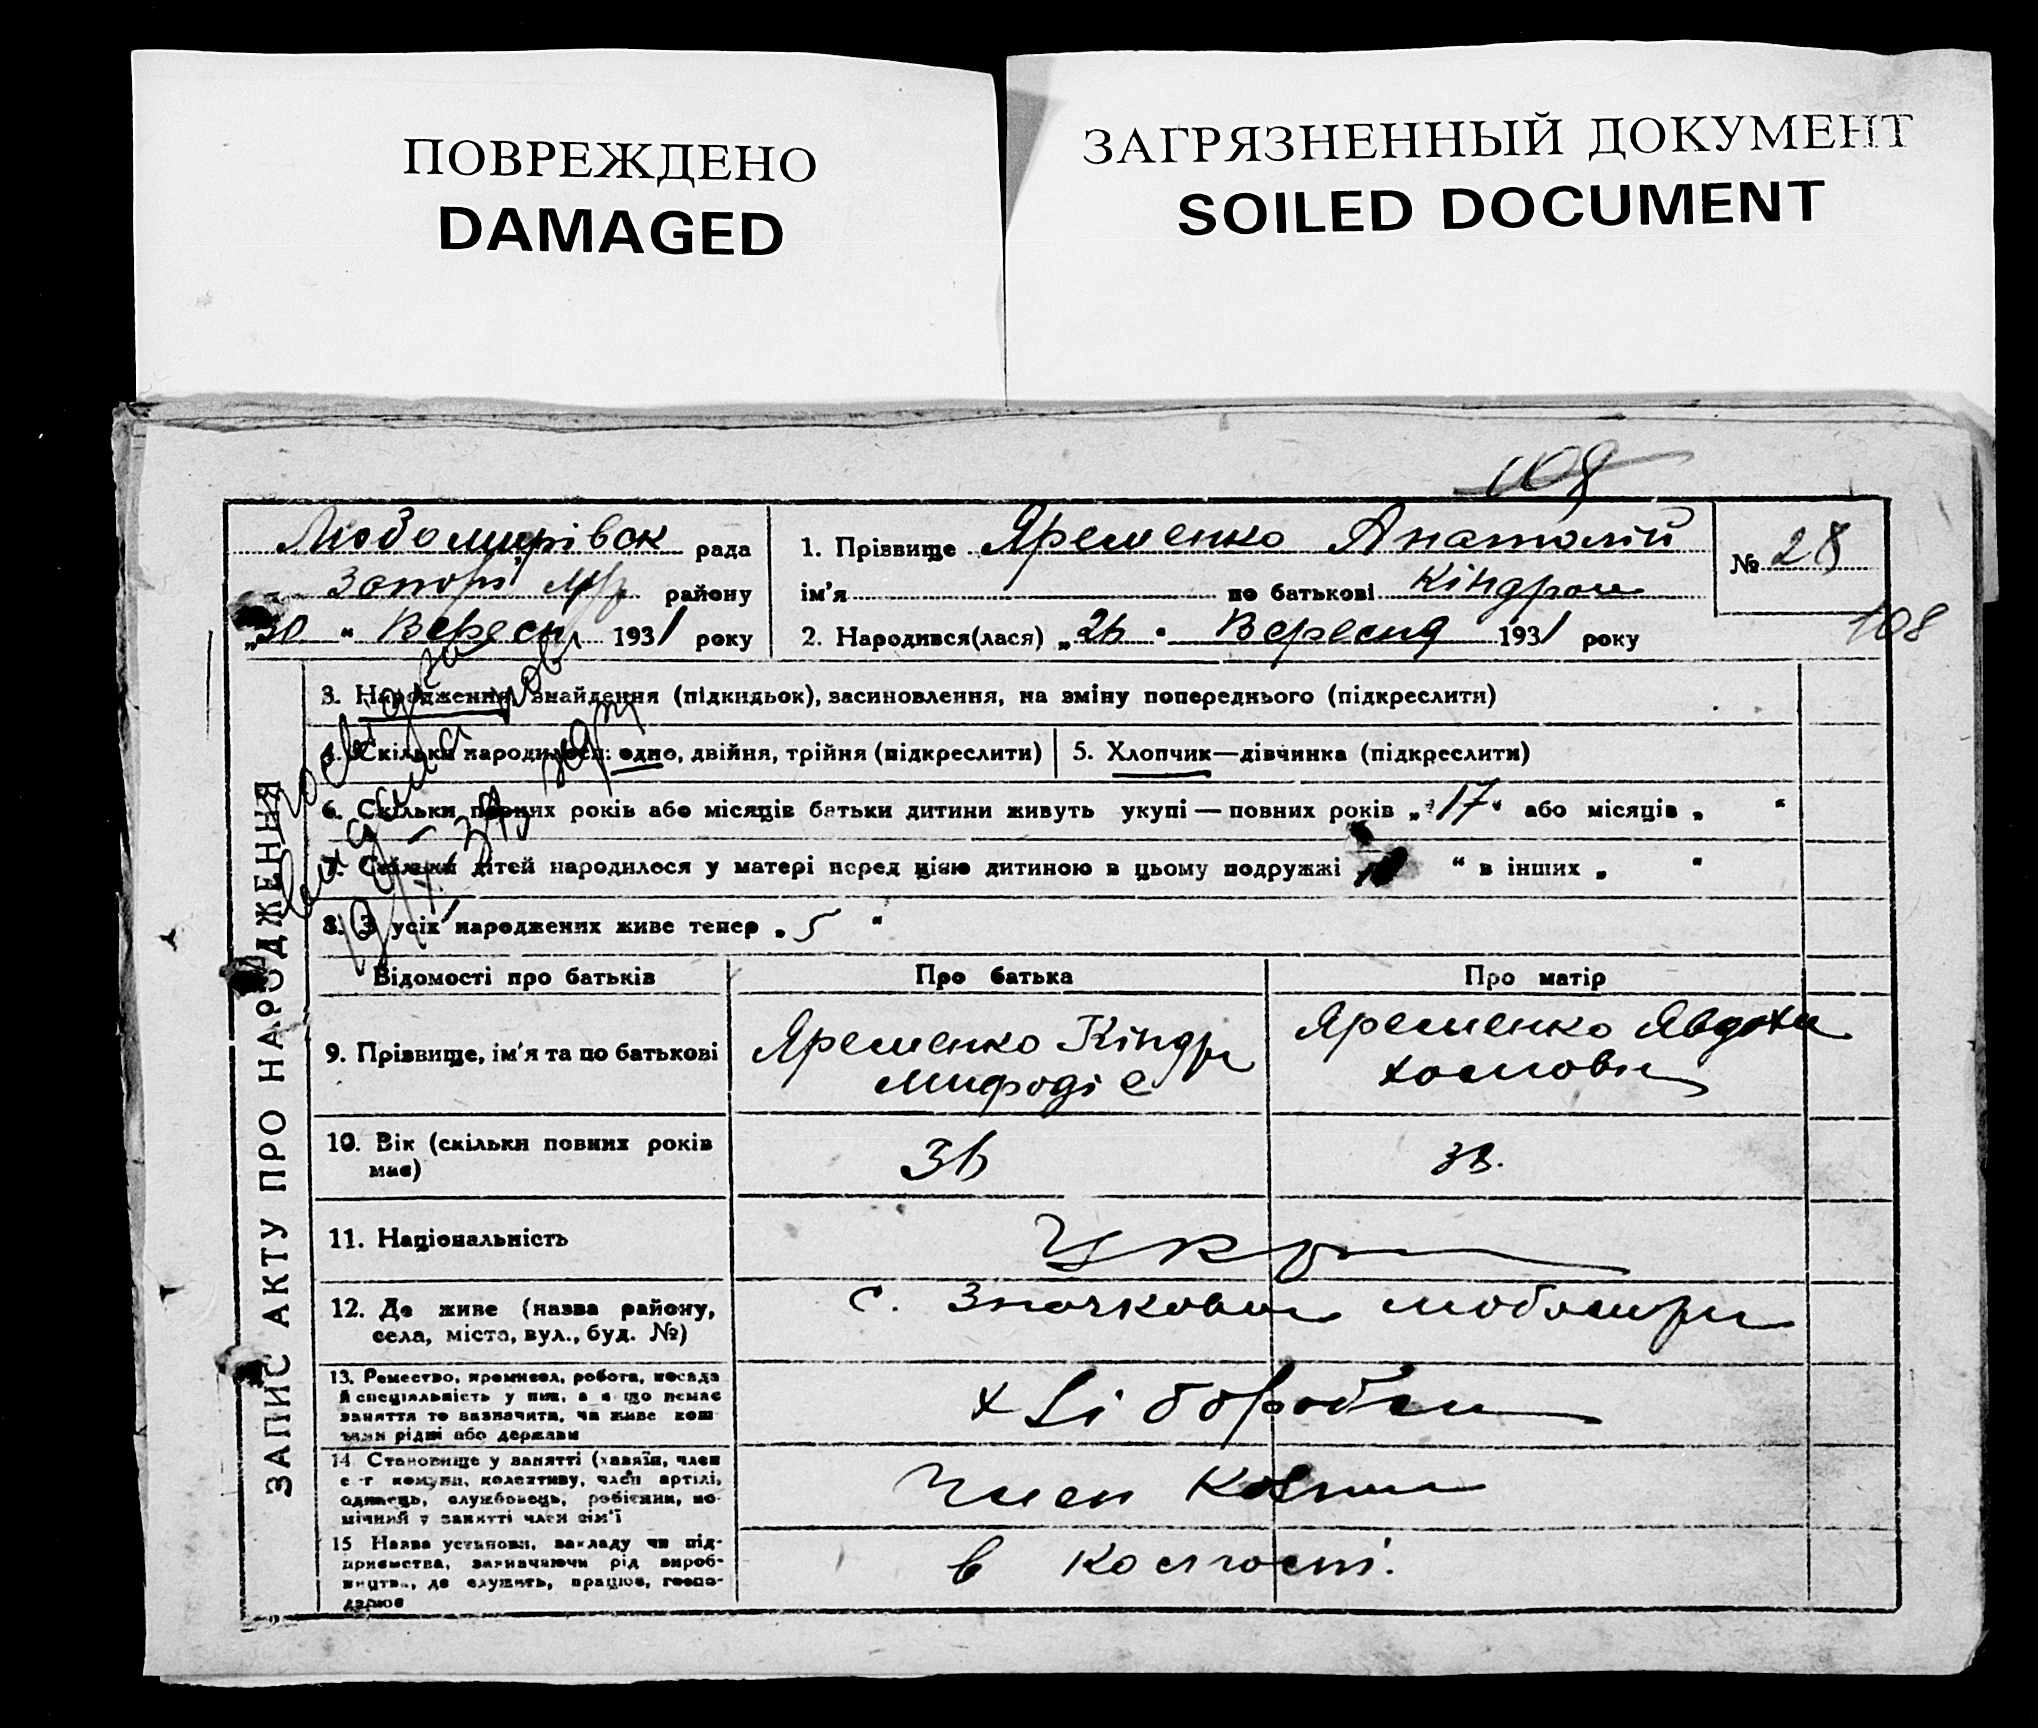 ПОВРЕЖДЕНО
DAMAGED
ЗАГРЯЗНЕННЫЙ ДОКУМЕНТ
SOILED DOCUMENT
108
Любомирівськ рада
району
„30 “ Вересн 1931 року
1. Прізвище Яременко Анатолій
ім'я по батькові Кіндрат
2. Народився(лася) „26 “ Вересня 1931 року
№ 28
108
ЗАПИС АКТУ ПРО НАРОДЖЕННЯ
3. Народження, знайдення (підкидьок), засиновлення, на зміну попереднього (підкреслити)
4. Скільки народилося: одно, двійня, трійня (підкреслити)
5. Хлопчик—дівчинка (підкреслити)
6. Скільки повних років або місяців батьки дитини живуть укупі — повних років „ 17 “ або місяців „ “
7. Скільки дітей народилося у матері перед цією дитиною в цьому подружжі “ в інших „ “
8. З усіх народжених живе тепер „ 5 “
Відомості про батьків Про батька Про матір
9. Прізвище, ім'я та по батькові
Яременко Кіндр
Мифодіє
Яременко Явдоха
10. Вік (скільки повних років
має)
36
11. Національність
Укр
12. Де живе (назва району,
села, міста, вул., буд. №)
с. Значкова Любомири
13. Ремество, промисел, робота, посада
й спеціяльність у них, а якщо немає
заняття то зазначити, чи живе кош
тами рідні або держави
хліборобин
14 Становище у занятті (хазяїн, член
с-г комуни, колективу, член артілі,
одинець, службовець, робітник, по-
мічний у занятті член сім'ї
Член
15 Назва установи, закладу чи під-
приємства, зазначаючи рід вироб-
ництва, де служить, працює, госпо-
дарює
в колгоспі.